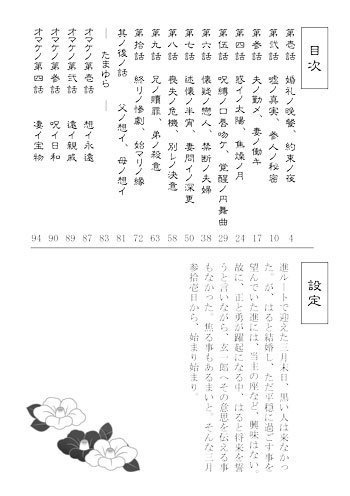 目次
第壱話 婚礼ノ晩餐、約束ノ夜 4
第弐話 嘘ノ真実、参人ノ秘密 10
第参話 夫ノ勤メ、妻ノ働キ 17
第四話 惑イノ太陽、焦燥ノ月 24
第伍話 呪縛ノ口吻ケ、覚醒ノ円舞曲 29
第六話 懐疑ノ恋人、禁断ノ夫婦 38
第七話 述懐ノ半宵、妻問イノ深更 50
第八話 喪失ノ危機、別レノ決意 58
第九話 兄ノ贖罪、弟ノ殺意 63
第拾話 終リノ惨劇、始マリノ縁 72
其ノ後ノ話 父ノ想イ、母ノ想イ 81
― たまゆら ― 83
オマケノ第壱話 想イ永遠 87
オマケノ第弐話 遠イ親戚 89
オマケノ第参話 呪イ日和 90
オマケノ第四話 凄イ宝物 94
設定
進ルートで迎えた三月末日、黒い人は来なかっ
た。が、はると結婚し、ただ平穏に過ごす事を
望んでいた進には、当主の座など、興味はない。
故に、正と勇が躍起になる中、はると将来を誓
うと言いながら、玄一郎へその意思を伝える事
もなかった。焦る事もあるまいと。そんな三月
参拾壱日から、始まり始まり。